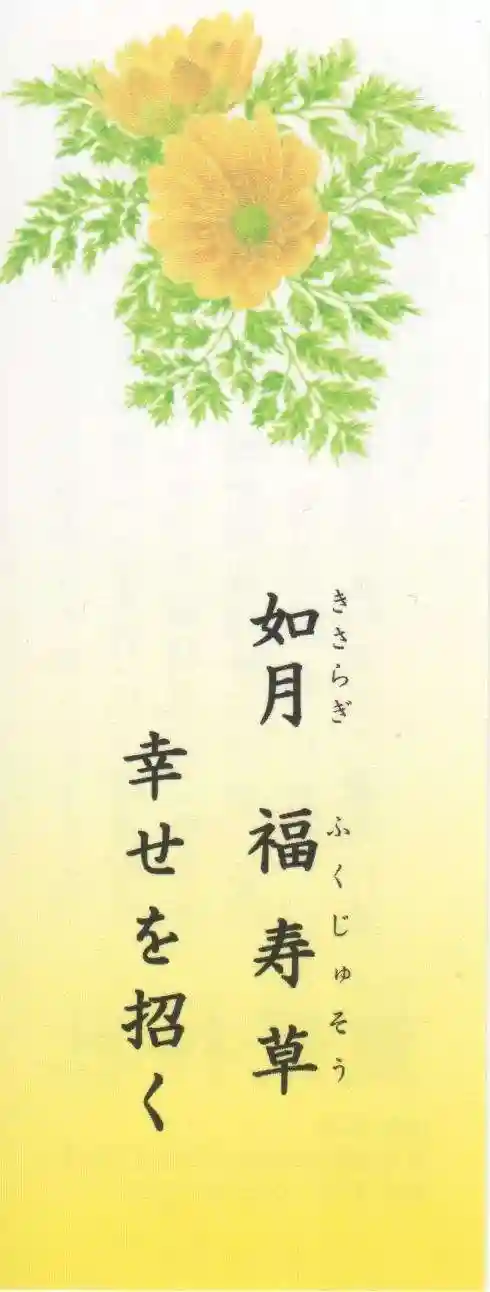 如月　福寿草
きさらぎ　ふくじゅそう
幸せを招く